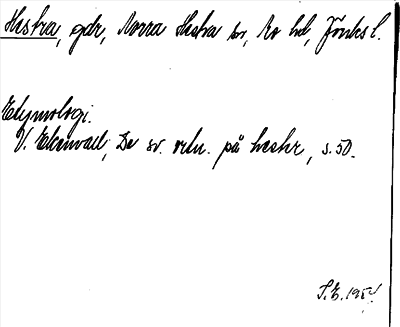 Hestra, gdr, Norra Hestra sn, Mo hd, Jönk. l.
Etymologi.
V. Ekenvall, De sv. ortn. på hestr, s. 50.
S.E. 195